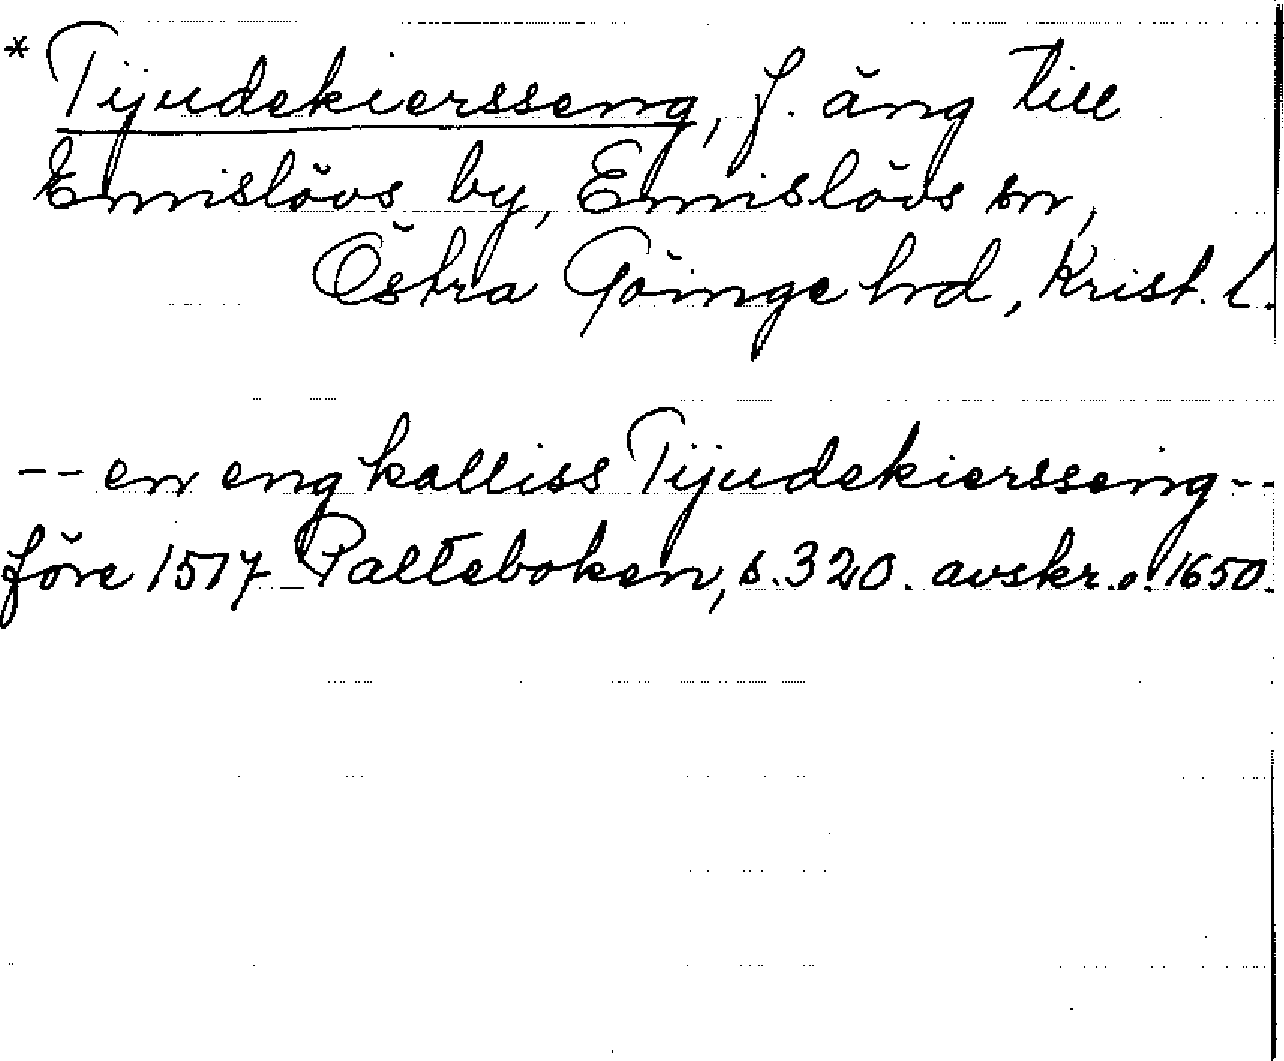 * Tijudekiersseng, f. äng till
Emislövs by, Emislövs sn,
Östra Göinge hrd, Krist. l.
-- en eng kalliss Tijudekiersseing --
före 1517 Palteboken, s. 320. avskr. o. 1650.